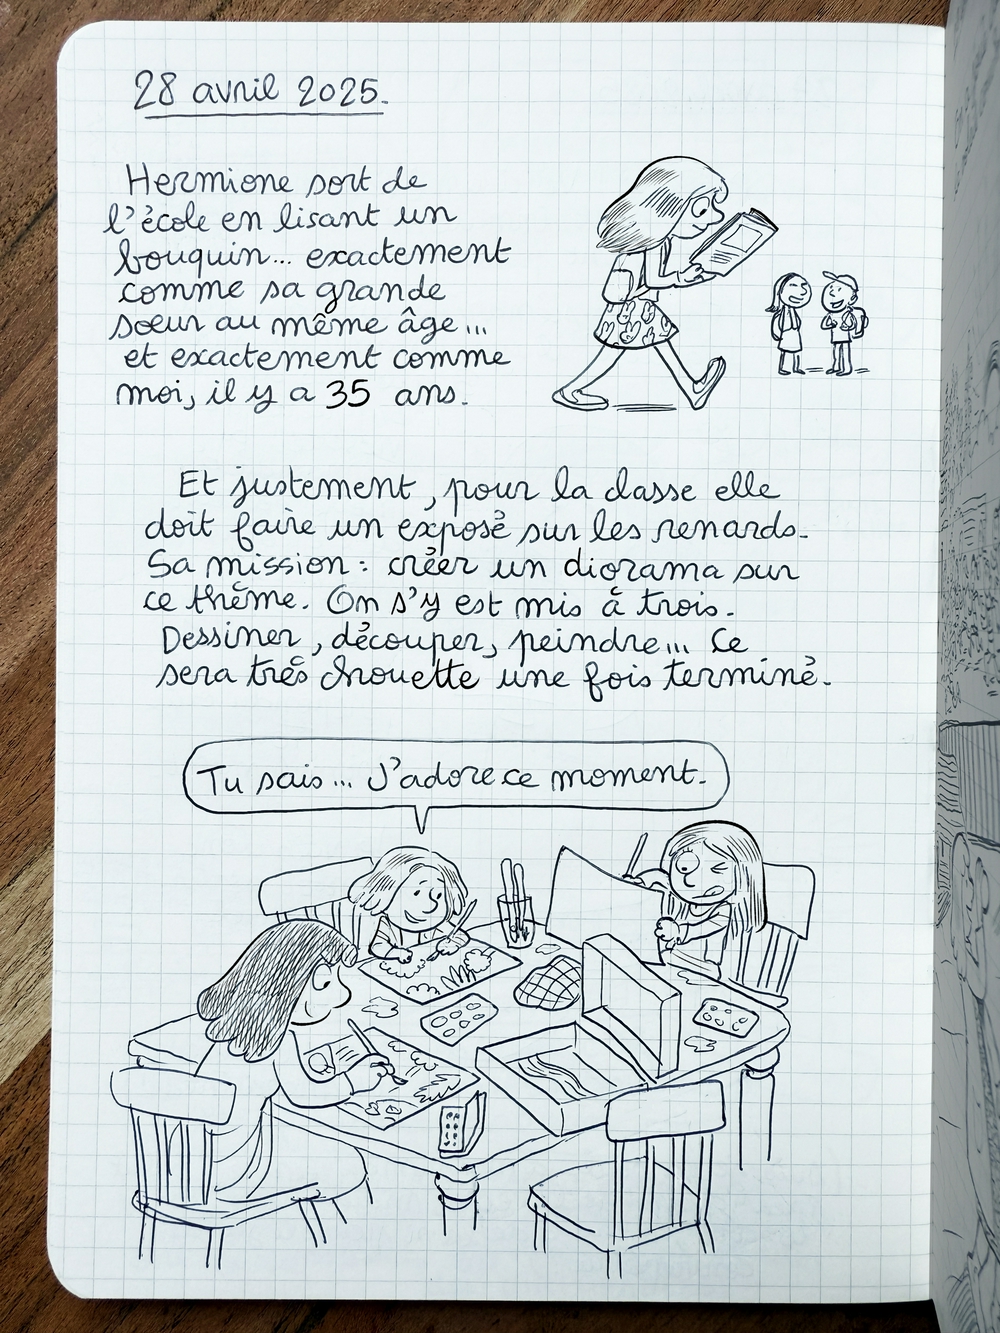 28 avril 2025.
Hermione sort de
l'école en lisant un
bouquin... exactement
comme sa grande
soeur au même âge...
et exactement comme
moi, il y a 35 ans.
Et justement, pour la classe elle
doit faire un exposé sur les renards.
Sa mission : créer un diorama sur
ce thème. On s'y est mis à trois.
Dessiner, découper, peindre... Ce
sera très chouette une fois terminé.
Tu sais... J'adore ce moment.